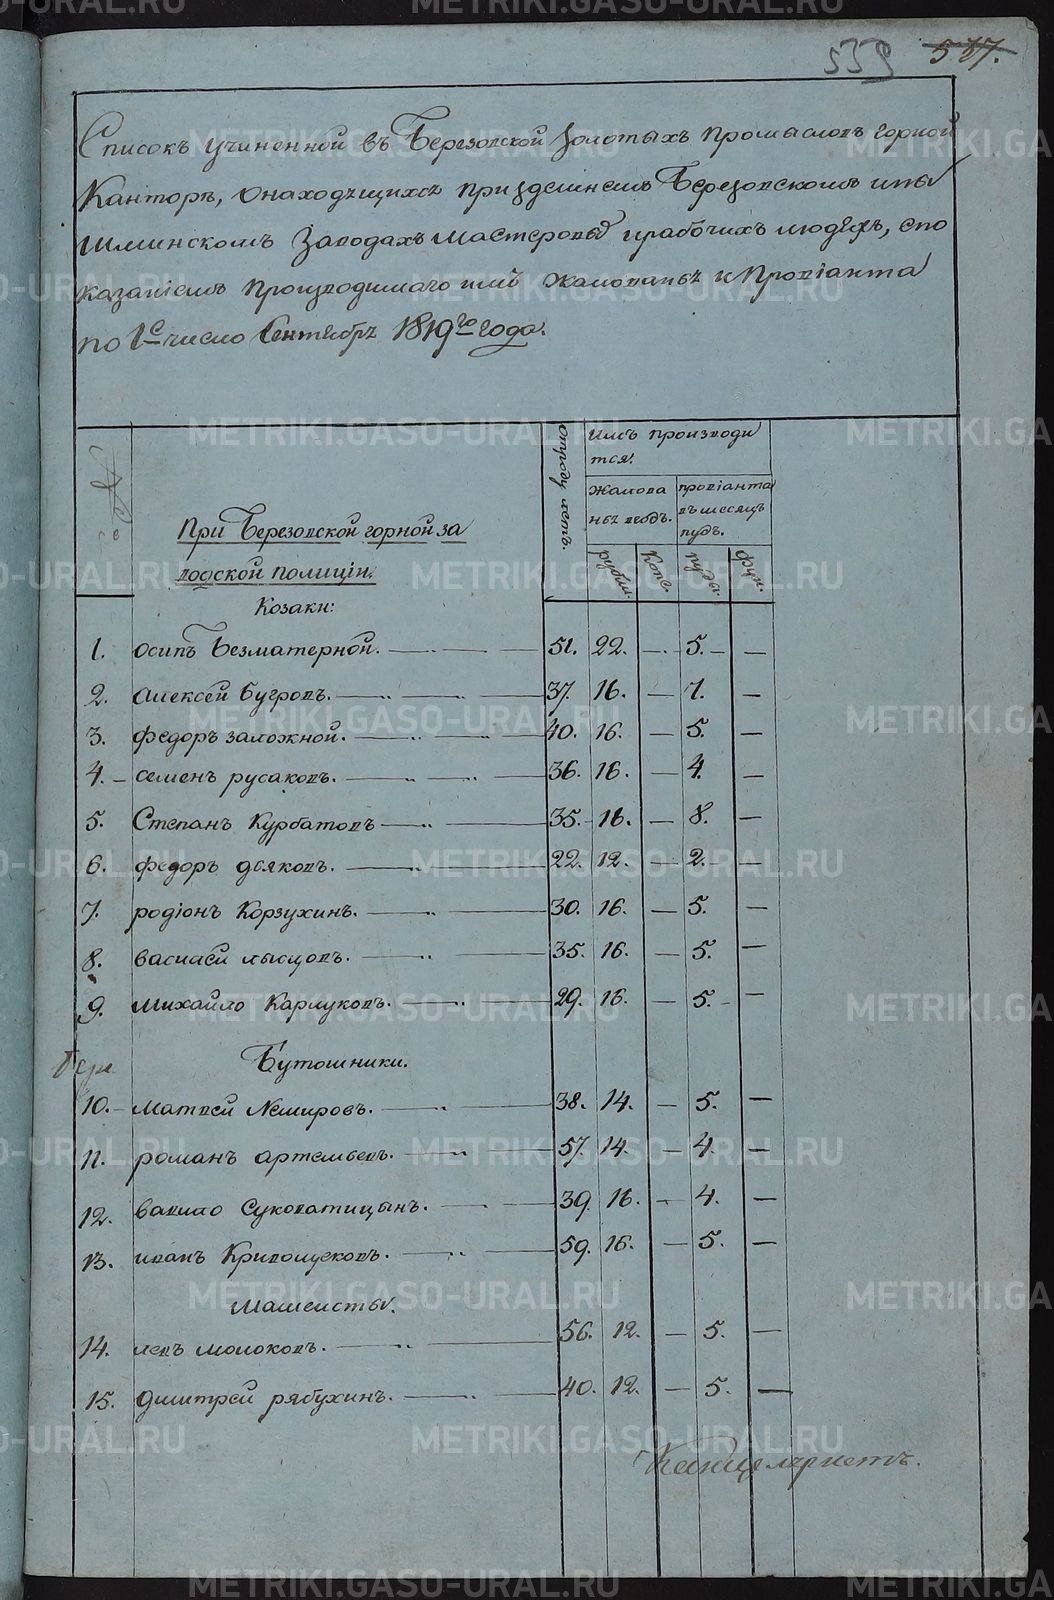 539 537.
Списокъ учиненной въ Березовской Золотыхъ промысловъ горной
Канторѣ, онаходящихся приздешнемъ Березовскомъ ипы
шминскомъ Заводахъ мастеровыхъ ирабочихъ людѣхъ, спо
казаніемъ производимаго имъ жалованья и Провіанта
по 1е число Сентября 1819го года.
№
При Березовской горной за
водской полиціи.
Козаки:
Отроду летъ.
имъ производи
тся.
жалова
нья вгодъ.
провіанта
въ месяцъ
пудъ.
рубли.
Копе.
пуды.
фун.
1. Осипъ Безматерной. — 51. 22. — 5. —
2. Алексей Бугровъ. — 37. 16. — 7. —
3. федоръ заложной. — 40. 16. — 5. —
4. семенъ русаковъ. — 36. 16. — 4. —
5. Степанъ Курбатовъ — 35. 16. — 8. —
6. федоръ дьяковъ. — 22. 12. — 2. —
7. родіонъ Корзухинъ. — 30. 16. — 5. —
8. василей лысцовъ. — 35. 16. — 5. —
9. михайло Карлуковъ. — 29. 16. — 5. —
Бутошники.
10. матвей Немировъ. — 38. 14. — 5. —
11. романъ артемьевъ. — 57. 14. — 4. —
12. вавило Суковатицынъ. — 39. 16. — 4. —
13. иванъ Кривощековъ. — 59. 16. — 5. —
Машеисты.
14. левъ молоковъ. — 56. 12. — 5. —
15. дмитрей рябухинъ. — 40. 12. — 5. —
Канцеляристъ.
METRIKI.GASO-URAL.RU